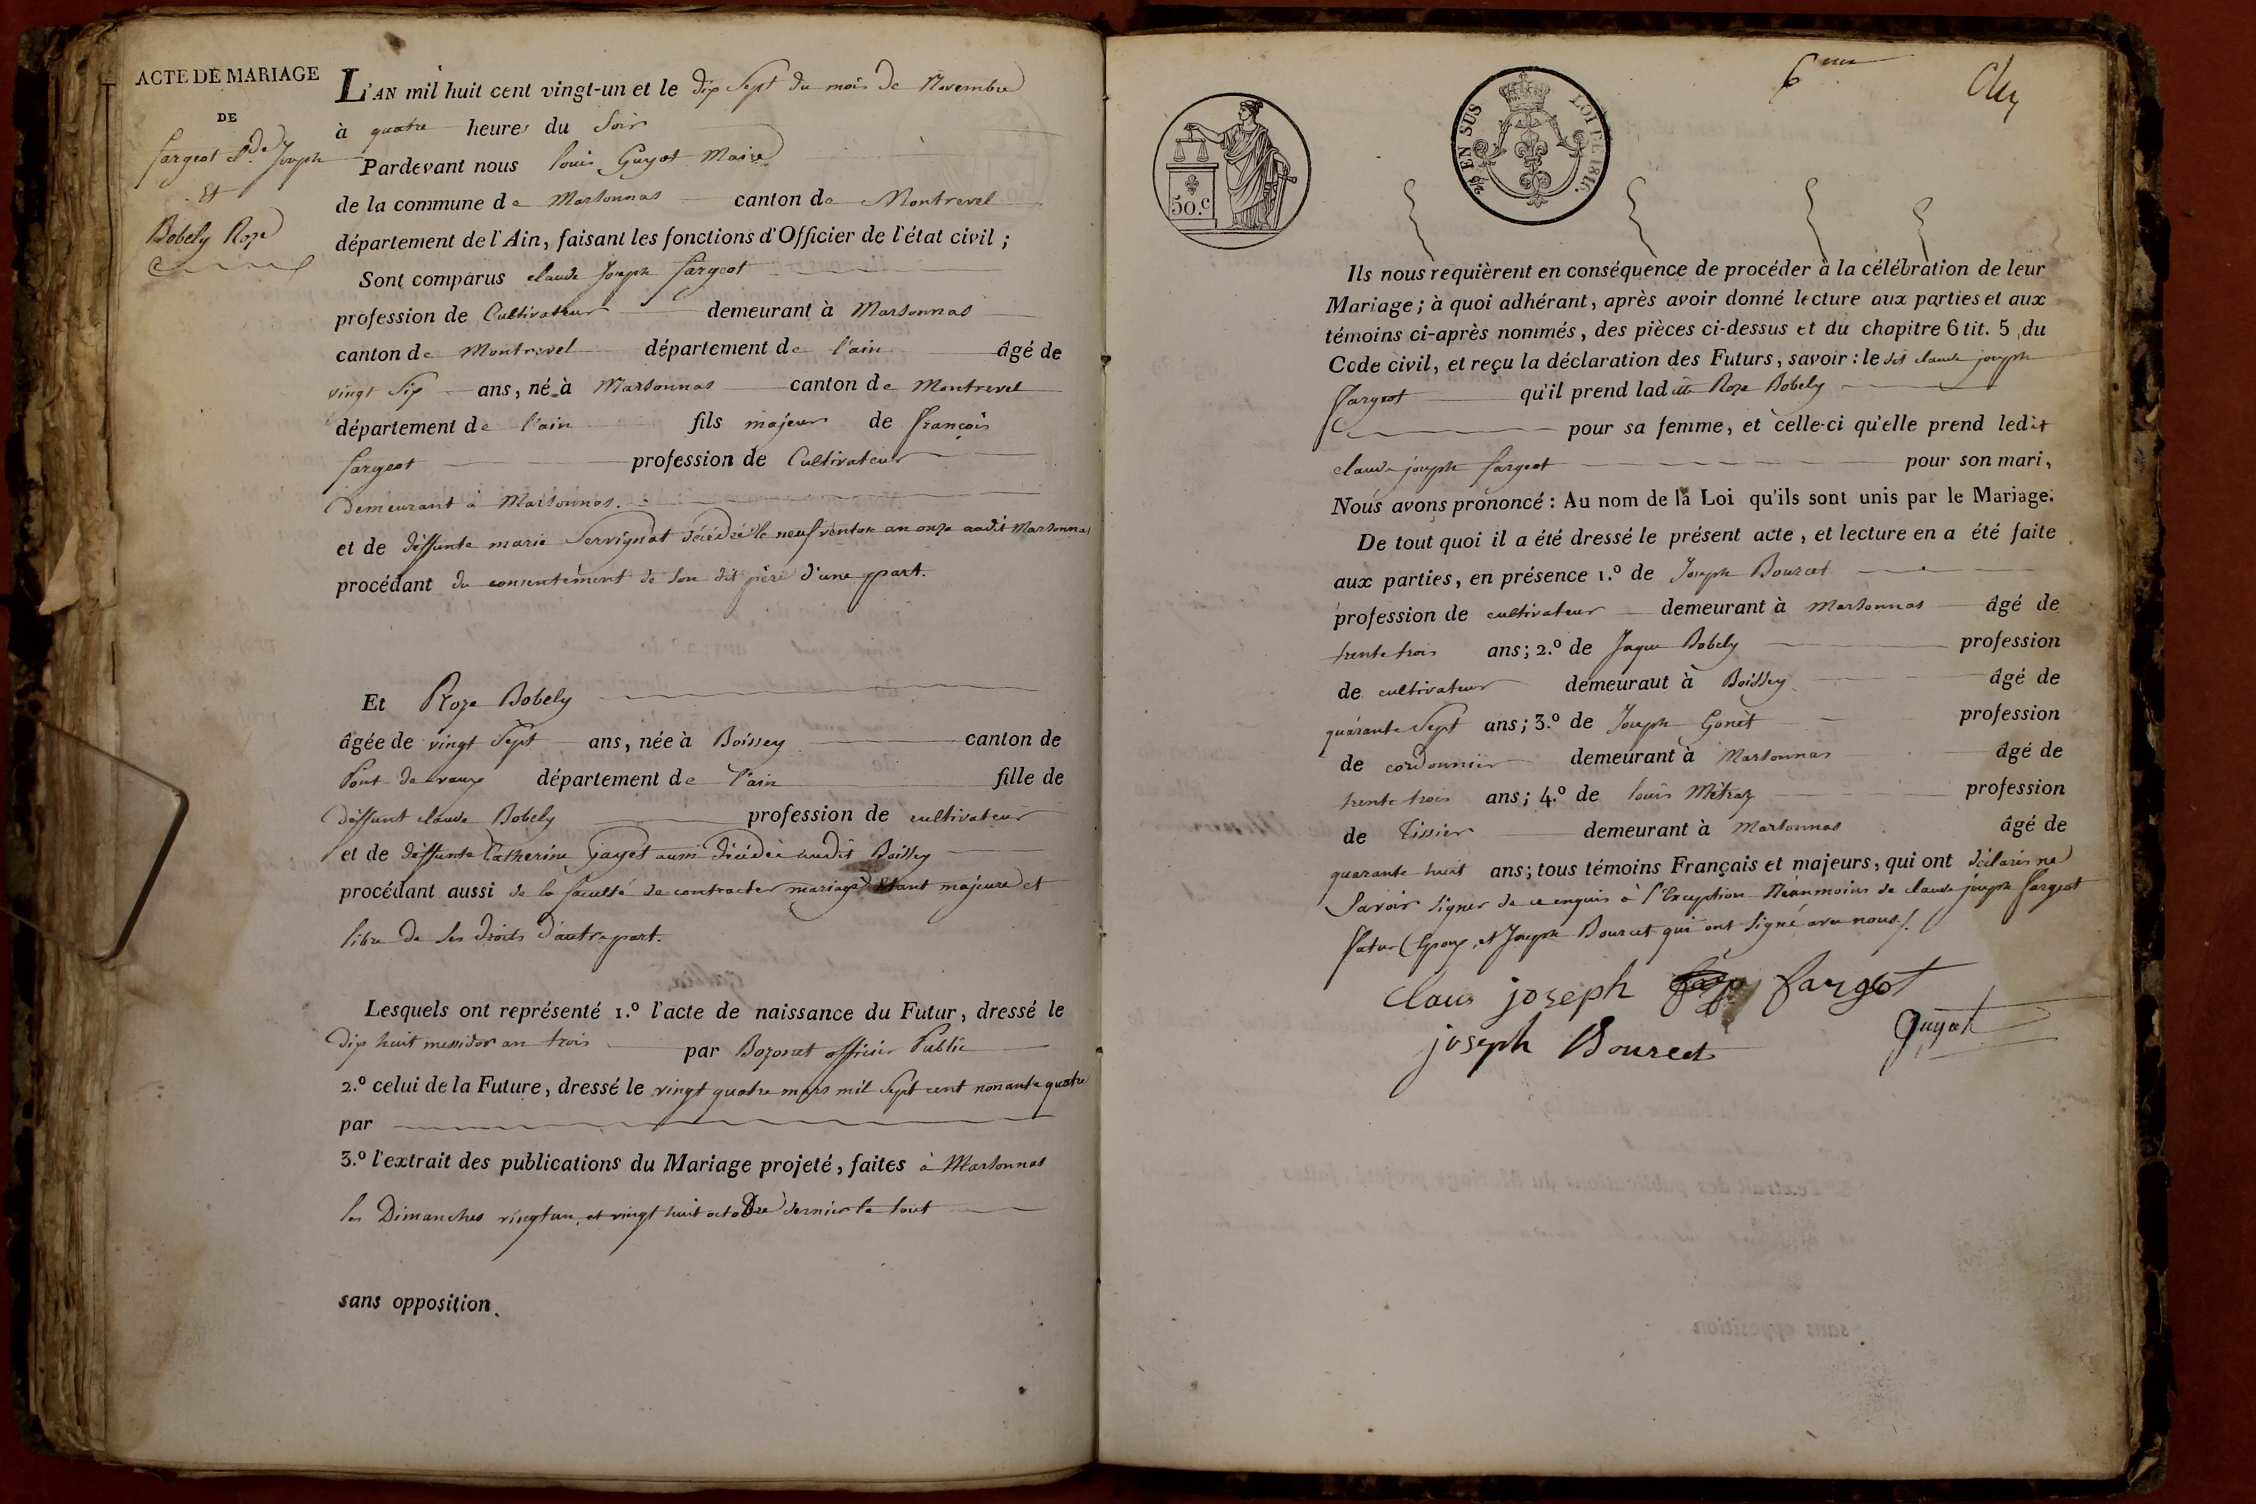 ACTE DE MARIAGE
DE
fargeot Cde Joseph
Et
Bobely Roze
L'AN mil huit cent vingt-un et le dix Sept du mois de Novembre
à quatre heures du Soir
Pardevant nous louis Guyot Maire
de la commune de Marsonnas canton de Montrevel
département de l'Ain, faisant les fonctions d'Officier de l'état civil ;
Sont comparus claude Joseph fargeot
profession de Cultivateur demeurant à Marsonnas
canton de Montrevel département de l'ain âgé de
vingt Six ans, né à Marsonnas canton de Montrevel
département de l'ain fils majeur de françois
fargeot profession de Cultivateur
Demeurant à Marsonnas.
et de deffunte marie Servignat décédée le neuf ventose an onze audit Marsonnas
procédant du consentement de son dit père d'une part.
Et Roze Bobely
âgée de vingt Sept ans, née à Boissey canton de
Pont de vaux département de l'ain fille de
deffunt claude Bobely profession de cultivateur
et de deffunte Catherine Gayet aussi décédée audit Boissey
procédant aussi de la faculté de contracter mariage Etant majeure et
libre de ses droits d'autre part.
Lesquels ont représenté 1.º l'acte de naissance du Futur, dressé le
dix huit messidor an trois par Bozonet officier Public
2.º celui de la Future, dressé le vingt quatre mars mil Sept cent nonante quatre
par
3.º l'extrait des publications du Mariage projeté, faites à Marsonnas
les Dimanches vingt un, et vingt huit octobre dernier le tout
sans opposition.
50.c
2/5 EN SUS LOI DE 1816.
6me
Ils nous requièrent en conséquence de procéder à la célébration de leur
Mariage ; à quoi adhérant, après avoir donné lecture aux parties et aux
témoins ci-après nommés, des pièces ci-dessus et du chapitre 6 tit. 5, du
Code civil, et reçu la déclaration des Futurs, savoir : le dit claude joseph
fargeot qu'il prend ladite Roze Bobely
pour sa femme, et celle-ci qu'elle prend ledit
claude joseph fargeot pour son mari,
Nous avons prononcé : Au nom de la Loi qu'ils sont unis par le Mariage.
De tout quoi il a été dressé le présent acte, et lecture en a été faite
aux parties, en présence 1.º de Joseph Bourcet
profession de cultivateur demeurant à Marsonnas âgé de
trente trois ans ; 2.º de Jaque Bobely profession
de cultivateur demeuraut à Boissey âgé de
quarante Sept ans ; 3.º de Joseph Gonet profession
de cordonnier demeurant à Marsonnas âgé de
trente trois ans ; 4.º de louis Métraz profession
de Tissier demeurant à Marsonnas âgé de
quarante huit ans ; tous témoins Français et majeurs, qui ont déclarés ne
Savoir signer de ce enquis à l'Exception Néanmoins de claude joseph fargeot
futur Epoux, et Joseph Bourcet qui ont Signé avec nous.
Claus joseph fargot
joseph Bourcet
Guyot